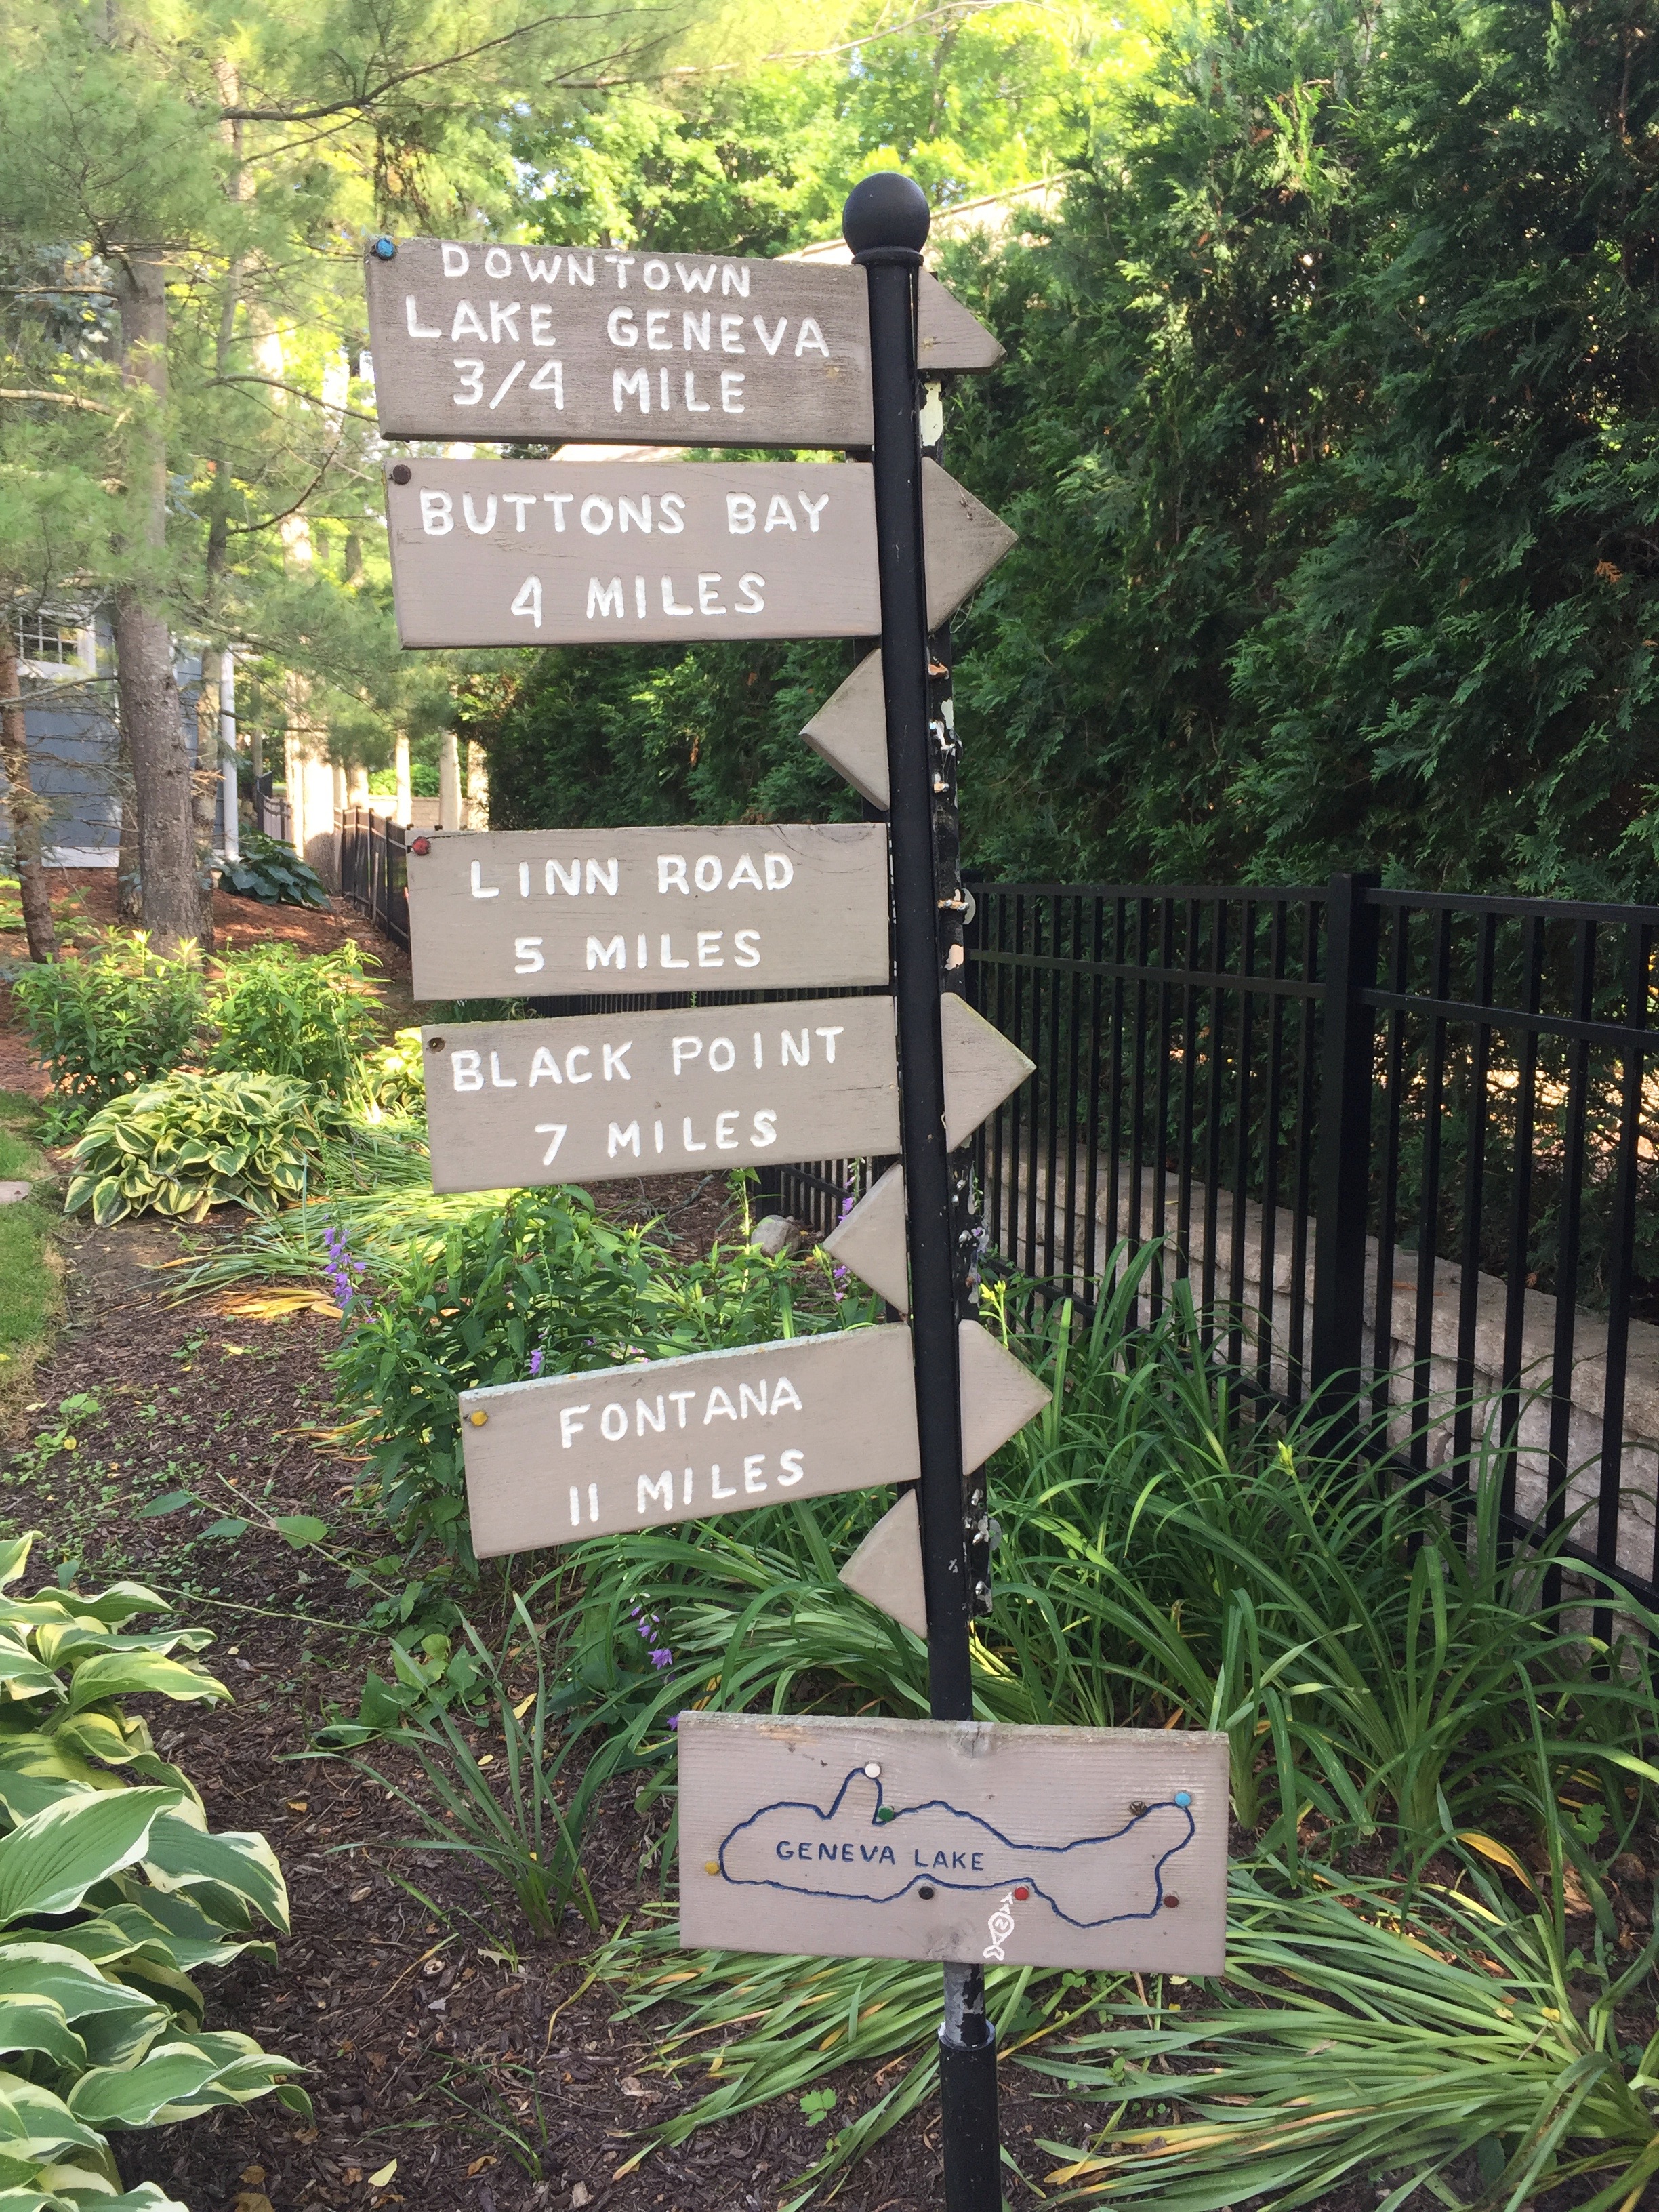 DOWNTOWN
LAKE GENEVA
3/4 MILE
BUTTONS BAY
4 MILES
LINN ROAD
5 MILES
BLACK POINT
7 MILES
FONTANA
11 MILES
GENEVA LAKE
N